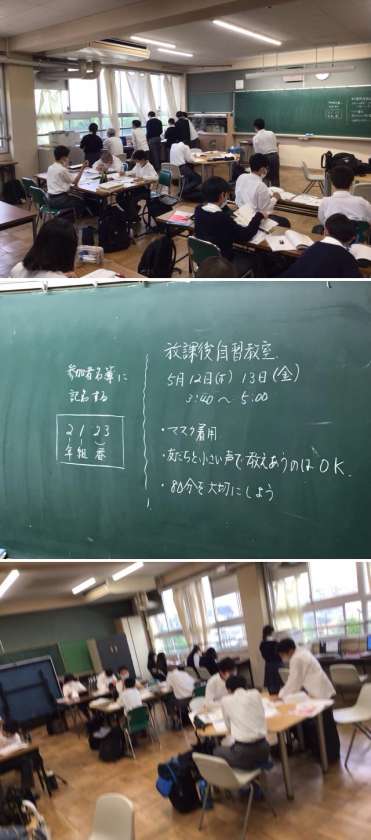 参加者名簿に
記名する
2 1 23
年 組 番
放課後自習教室
5月12日(木) 13日(金)
3:40 ～ 5:00
・マスク着用
・友だちと小さい声で教えあうのは OK.
・80分を大切にしよう